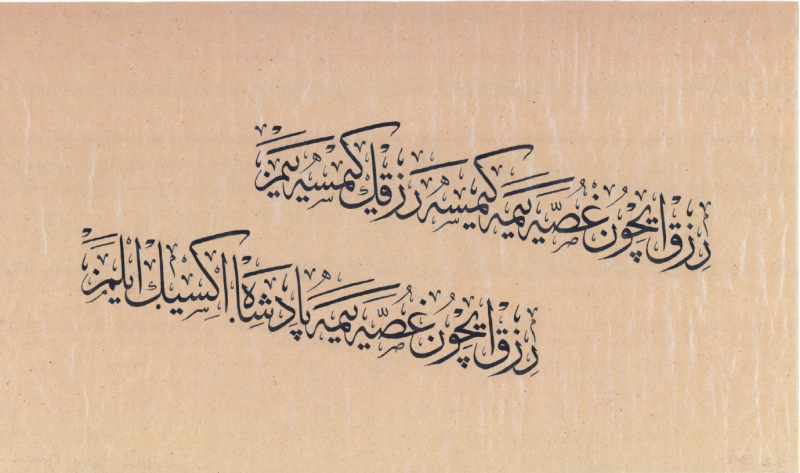 رِزق ایچون غُصّه ییمه كیمسه رزقك كمسه ییمز
رِزق ایچون غُصّه ییمه پادشاه اكسیك ایلمز